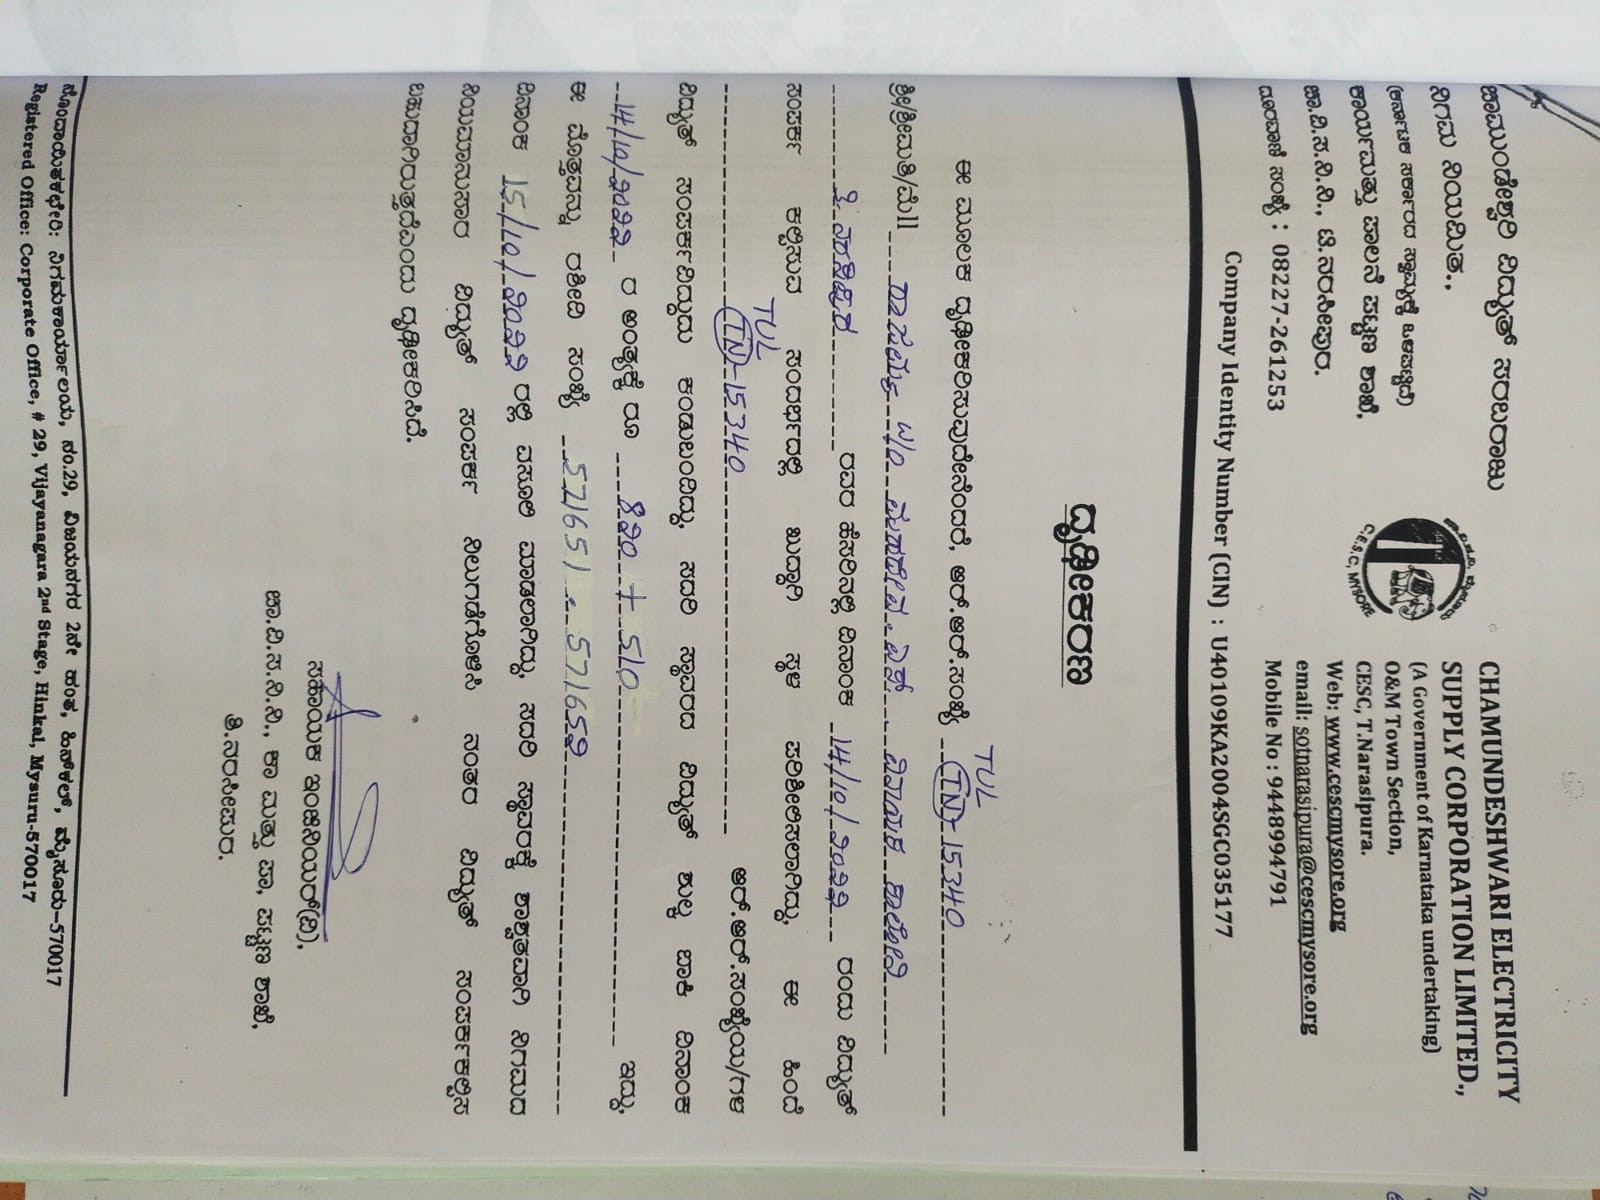 ಚಾಮುಂಡೇಶ್ವರಿ ವಿದ್ಯುತ್ ಸರಬರಾಜು
ನಿಗಮ ನಿಯಮಿತ.,
(ಕರ್ನಾಟಕ ಸರ್ಕಾರದ ಸ್ವಾಮ್ಯಕ್ಕೆ ಒಳಪಟ್ಟಿದೆ)
ಕಾರ್ಯಮತ್ತು ಪಾಲನೆ ಪಟ್ಟಣ ಶಾಖೆ,
ಚಾ.ವಿ.ಸ.ನಿ.ನಿ., ಟಿ.ನರಸೀಪುರ.
ದೂರವಾಣಿ ಸಂಖ್ಯೆ : 08227-261253
ಚಾ.ವಿ.ಸ.ನಿ. ಮೈಸೂರು
C.E.S.C, MYSORE
CHAMUNDESHWARI ELECTRICITY
SUPPLY CORPORATION LIMITED.,
(A Government of Karnataka undertaking)
O&M Town Section,
CESC, T.Narasipura.
Web: www.cescmysore.org
email: sotnarasipura@cescmysore.org
Mobile No : 9448994791
Company Identity Number (CIN) : U40109KA2004SGC035177
ದೃಢೀಕರಣ
TUL
ಈ ಮೂಲಕ ದೃಢೀಕರಿಸುವುದೇನೆಂದರೆ, ಆರ್.ಆರ್.ಸಂಖ್ಯೆ TN-15340
ಶ್ರೀ/ಶ್ರೀಮತಿ/ಮೆ|| W/o ಮಹದೇವ
ರವರ ಹೆಸರಿನಲ್ಲಿ ದಿನಾಂಕ 14/10/2022 ರಂದು ವಿದ್ಯುತ್
ಸಂಪರ್ಕ ಕಲ್ಪಿಸುವ ಸಂದರ್ಭದಲ್ಲಿ ಖುದ್ದಾಗಿ ಸ್ಥಳ ಪರಿಶೀಲಿಸಲಾಗಿದ್ದು, ಈ ಹಿಂದೆ
TUL
TN-15340 ಆರ್.ಆರ್.ಸಂಖ್ಯೆಯ/ಗಳ
ವಿದ್ಯುತ್ ಸಂಪರ್ಕವಿದ್ದುದು ಕಂಡುಬಂದಿದ್ದು, ಸದರಿ ಸ್ಥಾವರದ ವಿದ್ಯುತ್ ಶುಲ್ಕ ಬಾಕಿ ದಿನಾಂಕ
14/10/2022 ರ ಅಂತ್ಯಕ್ಕೆ ರೂ 820 + 510 ಇದ್ದು,
ಈ ಮೊತ್ತವನ್ನು ರಶೀದಿ ಸಂಖ್ಯೆ 571651. 571652
ದಿನಾಂಕ 15/10/2022 ರಲ್ಲಿ ವಸೂಲಿ ಮಾಡಲಾಗಿದ್ದು, ಸದರಿ ಸ್ಥಾವರಕ್ಕೆ ಶಾಶ್ವತವಾಗಿ ನಿಗಮದ
ನಿಯಮಾನುಸಾರ ವಿದ್ಯುತ್ ಸಂಪರ್ಕ ನಿಲುಗಡೆಗೊಳಿಸಿ ನಂತರ ವಿದ್ಯುತ್ ಸಂಪರ್ಕಕಲ್ಪಿಸ
ಬಹುದಾಗಿರುತ್ತದೆಎಂದು ದೃಢೀಕರಿಸಿದೆ.
ಸಹಾಯಕ ಇಂಜಿನಿಯರ್(ವಿ),
ಚಾ.ವಿ.ಸ.ನಿ.ನಿ., ಕಾ ಮತ್ತು ಪಾ, ಪಟ್ಟಣ ಶಾಖೆ,
ತಿ.ನರಸೀಪುರ.
ನೋಂದಾಯಿತಕಛೇರಿ: ನಿಗಮಕಾರ್ಯಾಲಯ, ನಂ.29, ವಿಜಯನಗರ 2ನೇ ಹಂತ, ಹಿನ್‌ಕಲ್, ಮೈಸೂರು-570017
Registered Office: Corporate Office, # 29, Vijayanagara 2nd Stage, Hinkal, Mysuru-570017